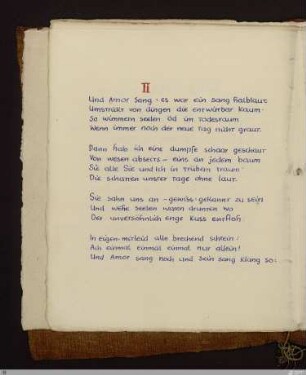 II
Und Amor sang: es war ein sang halblaut
Umstrickt von dingen die ein würber kaum
So wimmern seelen öd im todesraum
Wenn immer noch der neue tag nicht graut.
Dann hab ich eine dumpfe schaar geschaut
Von wesen abseits – eins an jedem baum
Sie alle Sie und ich in trübem traum
Die schatten unsrer tage ohne laut.
Sie sahn uns an –
Und welke seelen waren drinnen wo
Der unversöhnlich enge kuss entfloh.
In eigen-mitleid alle brechend schrein:
Ach einmal einmal einmal nur allein!
Und Amor sang noch und sein sang klang so: